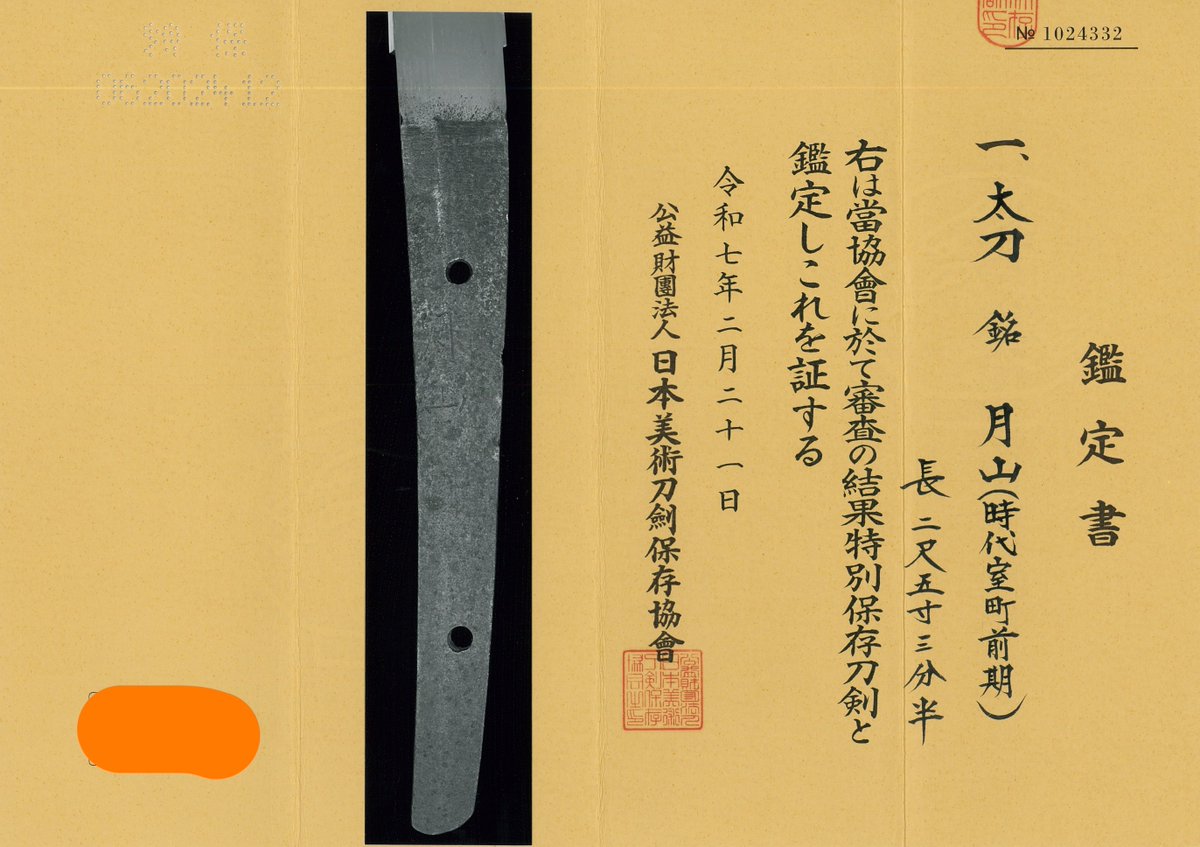 № 1024332
鑑定書
一、太刀 銘 月山(時代室町前期)
長二尺五寸三分半
右は當協會に於て審査の結果特別保存刀剣と
鑑定しこれを証する
令和七年二月二十一日
公益財團法人日本美術刀劍保存協會
06202412